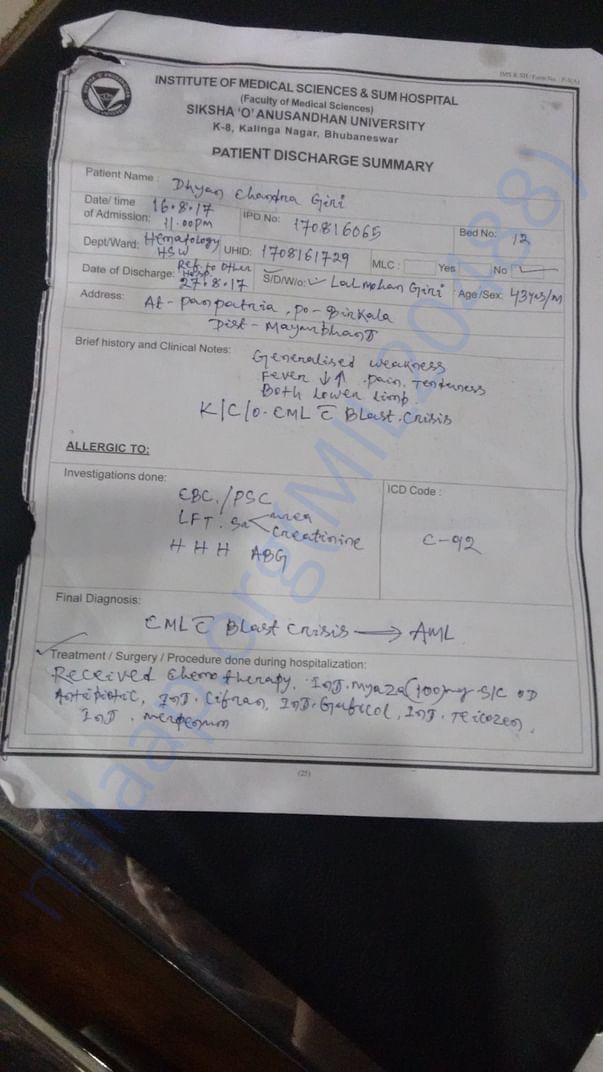 IMS & SH/Form No. : P-5(A)
INSTITUTE OF MEDICAL SCIENCES & SUM HOSPITAL
(Faculty of Medical Sciences)
SIKSHA 'O' ANUSANDHAN UNIVERSITY
K-8, Kalinga Nagar, Bhubaneswar
PATIENT DISCHARGE SUMMARY
Patient Name : Dhyan Chandra Giri
Date/ time of Admission: 16.8.17 11.00pm IPD No: 170816065 Bed No: 12
Dept/Ward: Hematology HSW UHID: 1708161729 MLC : Yes No ✓
Date of Discharge: Ref. to Other Hosp. 27.8.17 S/D/W/o: ✓ Lalmohan Giri Age/Sex: 43yrs/m
Address: At- panpatria, po-
Dist- Mayurbhanj
Brief history and Clinical Notes: Generalised weakness
Fever ↓↑ pain, Tenderness
Both Lower limb.
K/C/O- CML c̄ Blast Crisis
ALLERGIC TO:
Investigations done: ICD Code :
CBC./PSC
LFT. Sr< urea
creatinine
C-92
H H H ABG
Final Diagnosis:
CML c̄ Blast Crisis → AML
Treatment / Surgery / Procedure done during hospitalization:
Received Chemotherapy, Inj. myaza (100)mg S/C OD
Antibiotic, Inj. Cifran, Inj. , Inj. Teicozen,
Inj.
(25)
milaap.org(MIL20488)